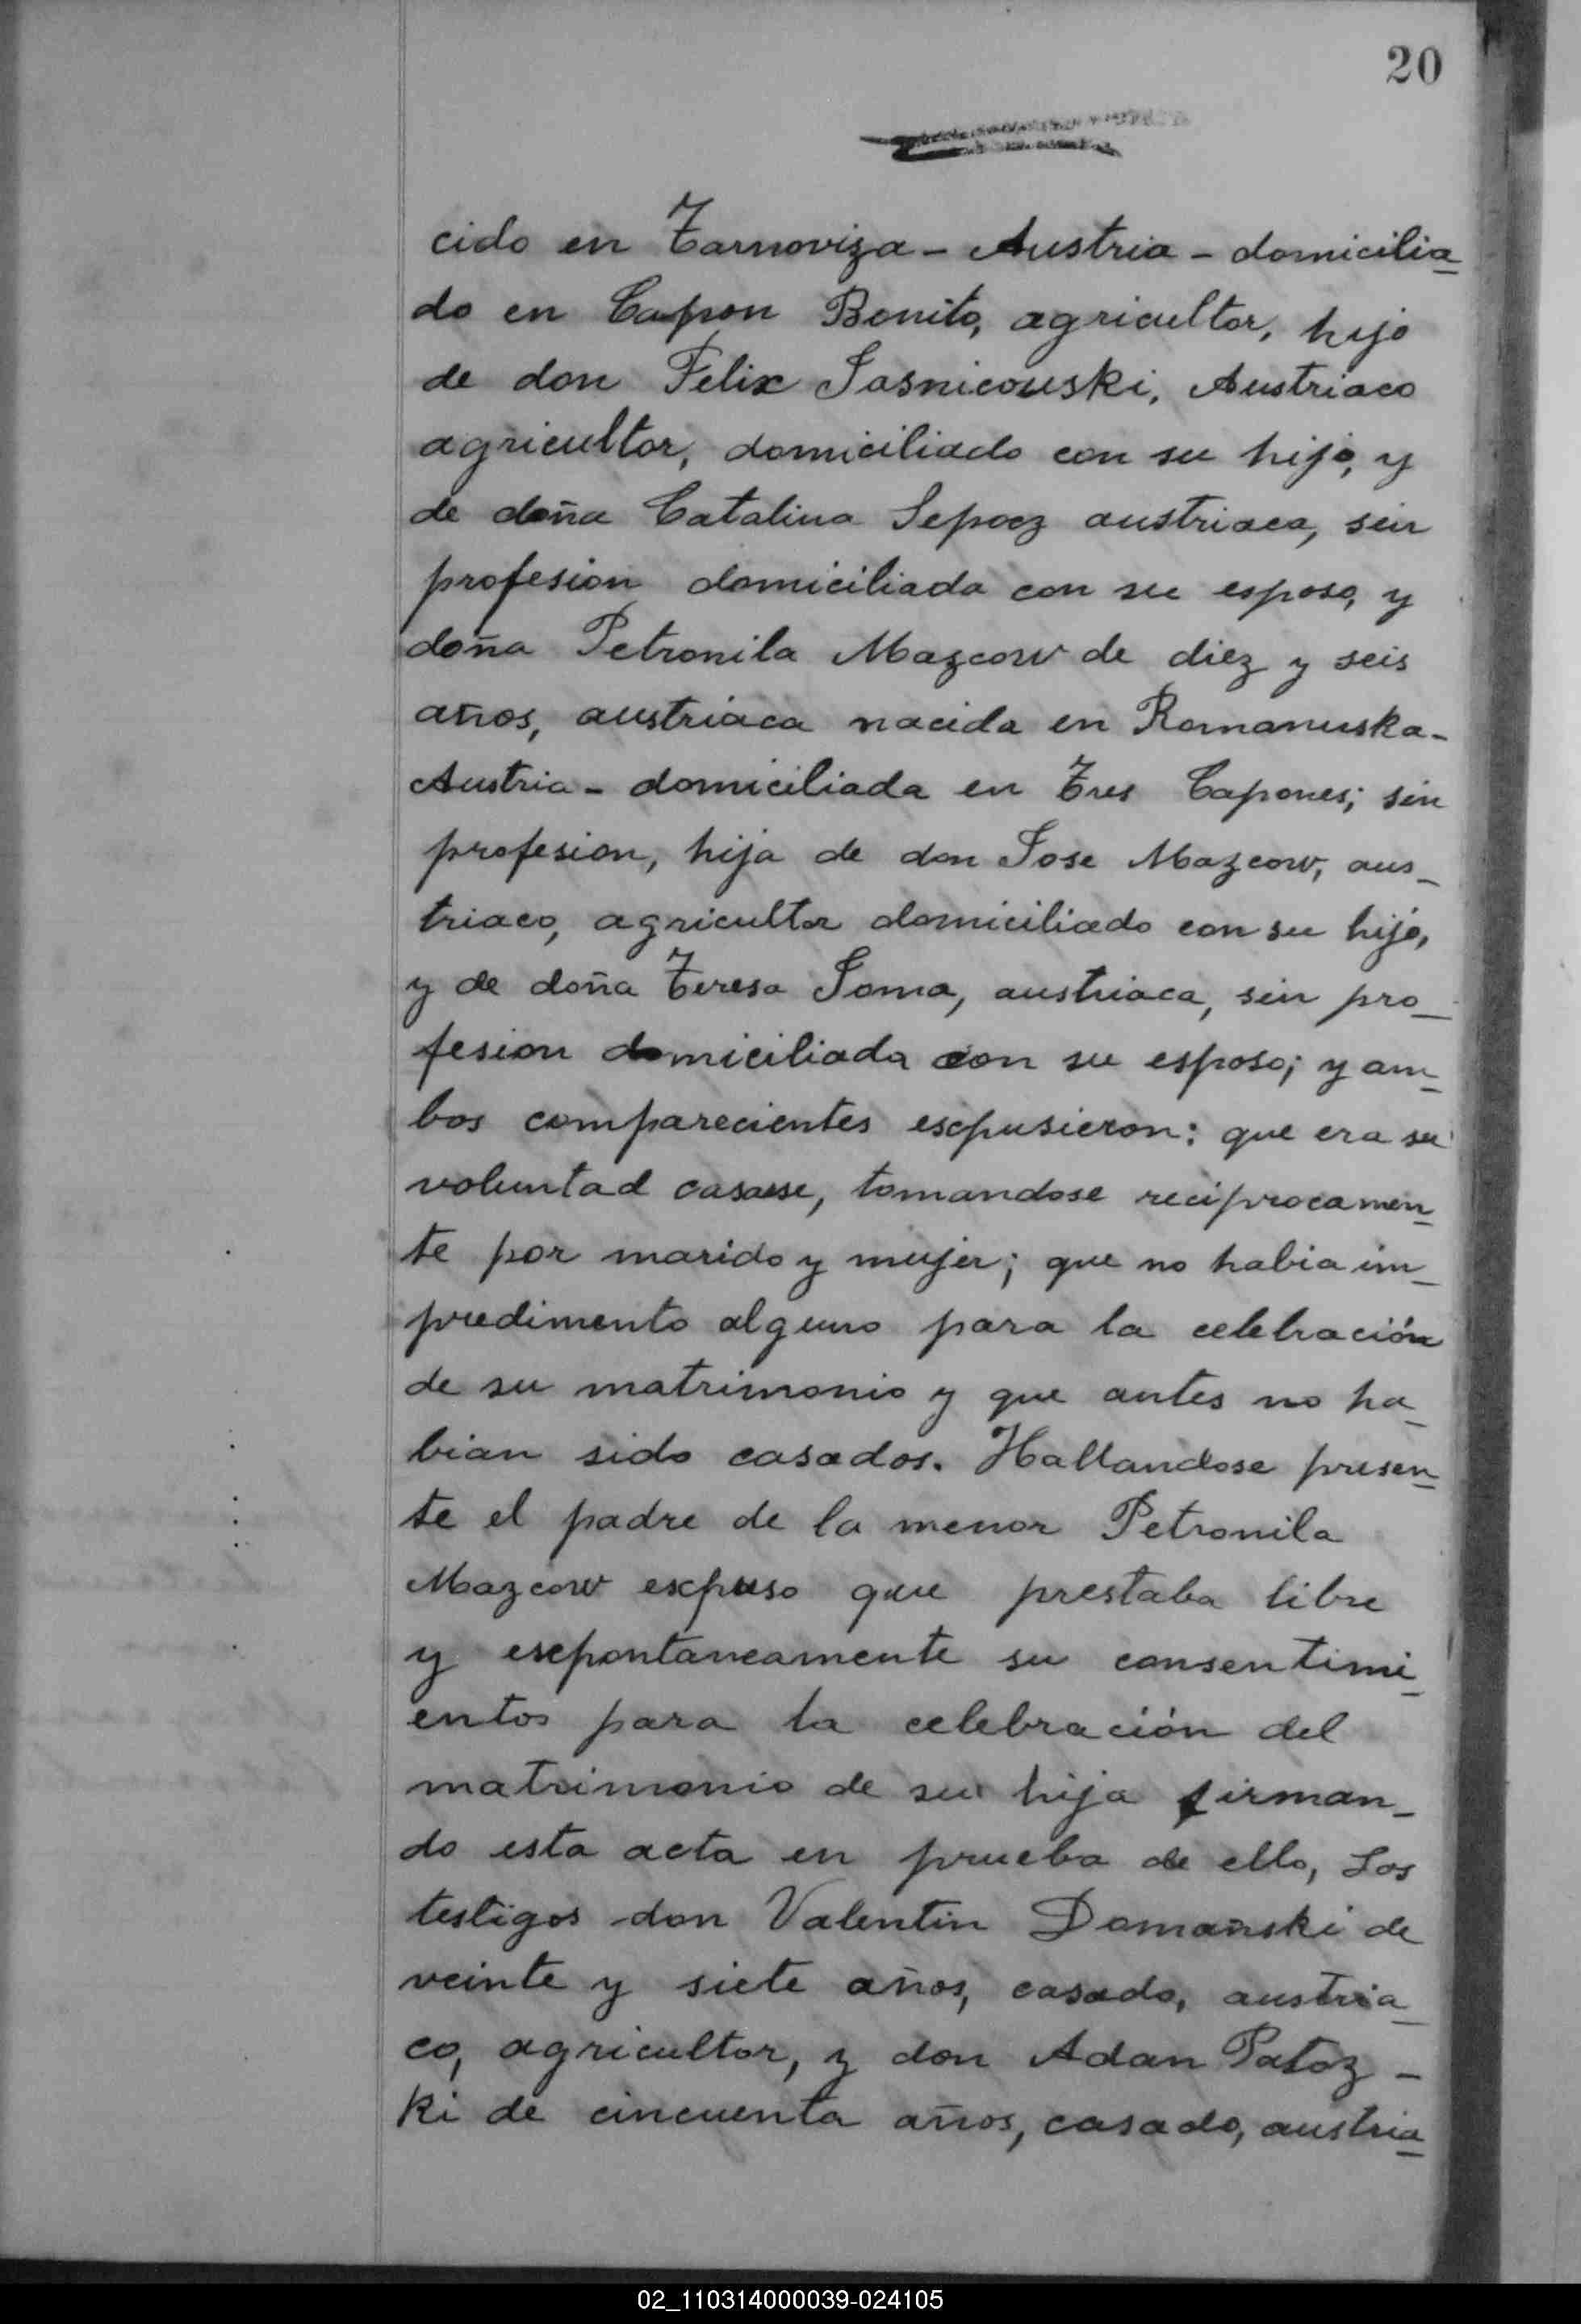 20
cido en Tarnoviza - Austria - domicilia
do en Capon Bonito, agricultor, hijo
de don Felix Jasnicouski, Austriaco
agricultor, domiciliado con su hijo, y
de doña Catalina Sepocz austriaca, sin
profesion domiciliada con su esposo, y
doña Petronila Mazcow de diez y seis
años, austriaca nacida en Romanuska -
Austria - domiciliada en Tres Capones; sin
profesion, hija de don Jose Mazcow, aus_
triaco, agricultor domiciliado con su hijo,
y de doña Teresa Joma, austriaca, sin pro_
fesion domiciliada con su esposo; y am_
bos comparecientes escpusieron: que era su
voluntad casarse, tomandose reciprocamen_
te por marido y mujer; que no habia im_
predimento alguno para la celebración
de su matrimonio y que antes no ha_
bian sido casados. Hallandose presen_
te el padre de la menor Petronila
Mazcow expuso que prestaba libre
y escpontaneamente su consentimi_
entos para la celebración del
matrimonio de su hija firman_
do esta acta en prueba de ello, Los
testigos don Valentin Domañski de
veinte y siete años, casado, austria_
co, agricultor, y don Adan Patoz -
ki de cincuenta años, casado, austria_
02_110314000039-024105